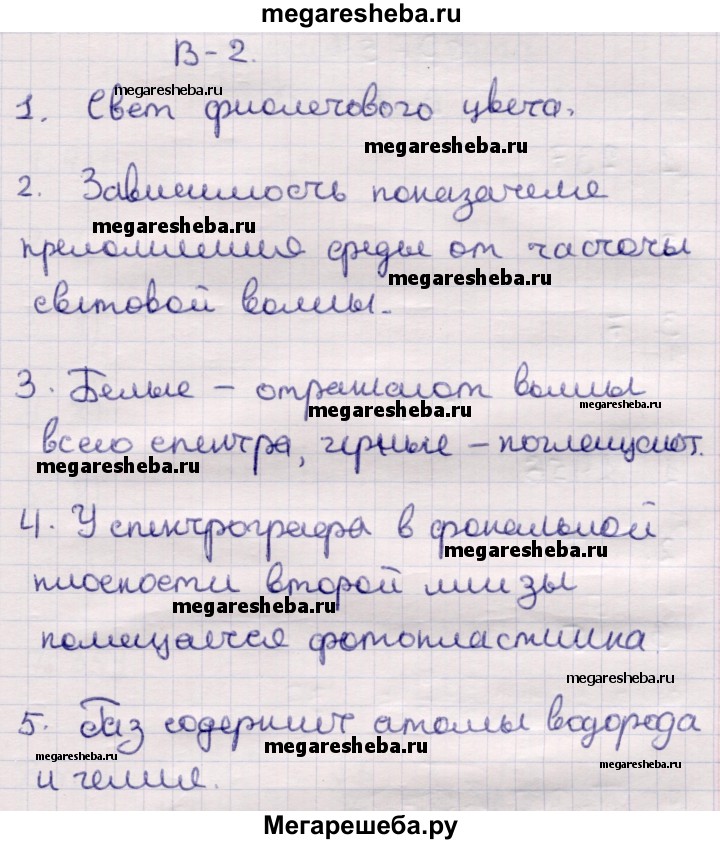 megaresheba.ru
В-2.
megaresheba.ru
1. Свет фиолетового цвета.
megaresheba.ru
2. Зависимость показателя
megaresheba.ru
преломления среды от частоты
megaresheba.ru
световой волны.
3. Белые – отражают волны
megaresheba.ru
megaresheba.ru
всего спектра, чёрные – поглощают.
megaresheba.ru
4. У спектрографа в фокальной
megaresheba.ru
плоскости второй линзы
megaresheba.ru
помещается фотопластинка
megaresheba.ru
5. Газ содержит атомы водорода
megaresheba.ru
megaresheba.ru
megaresheba.ru
и гелия.
Мегарешеба.ру